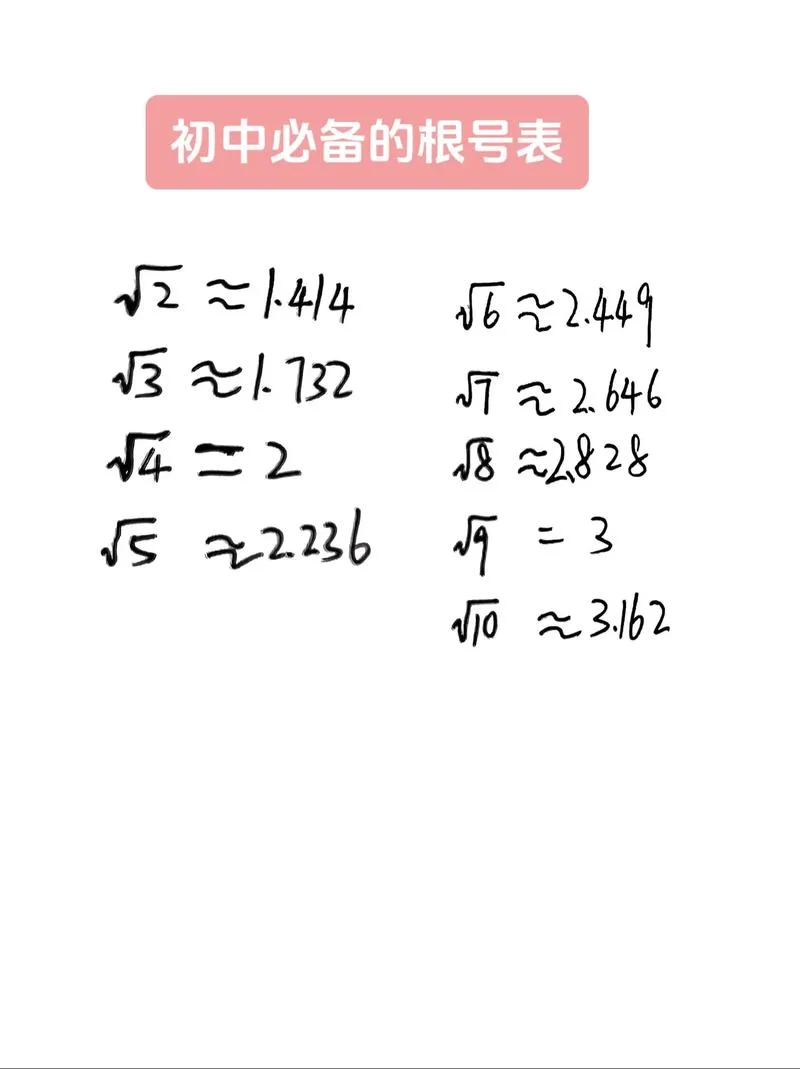 初中必备的根号表
√2 ≈1.414
√3 ≈1.732
√4 = 2
√5 ≈2.236
√6 ≈2.449
√7 ≈2.646
√8 ≈2.828
√9 = 3
√10 ≈3.162